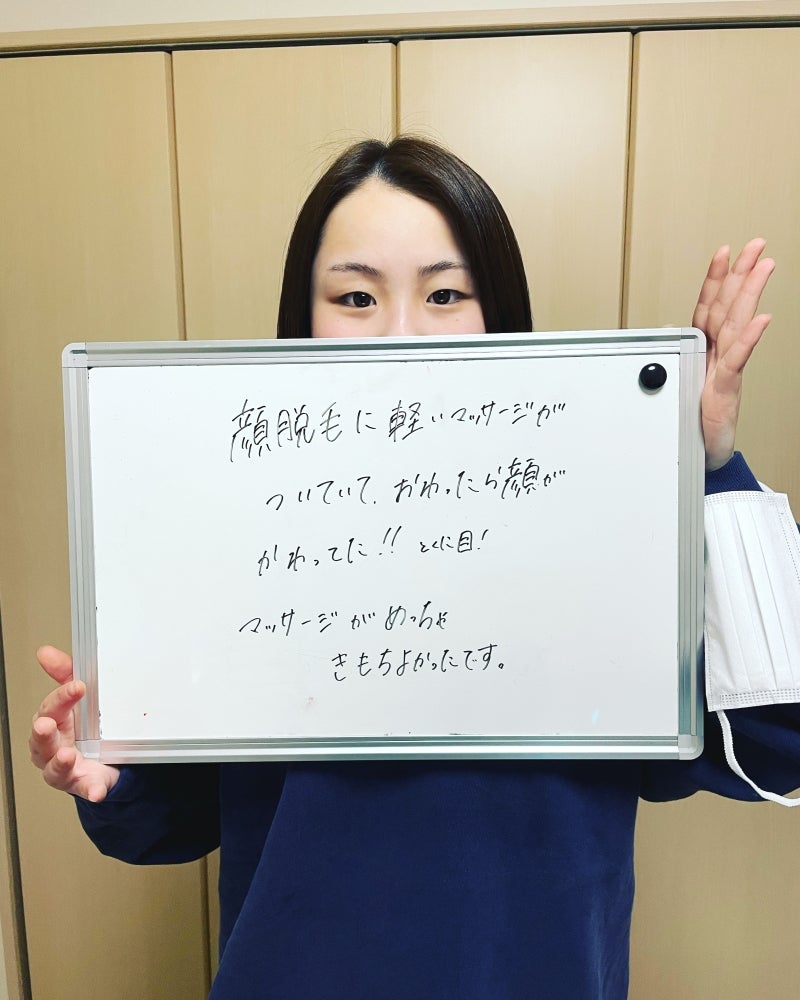 顔脱毛に軽いマッサージが
ついていて、おわったら顔が
かわってた!! とくに目!
マッサージがめっちゃ
きもちよかったです。